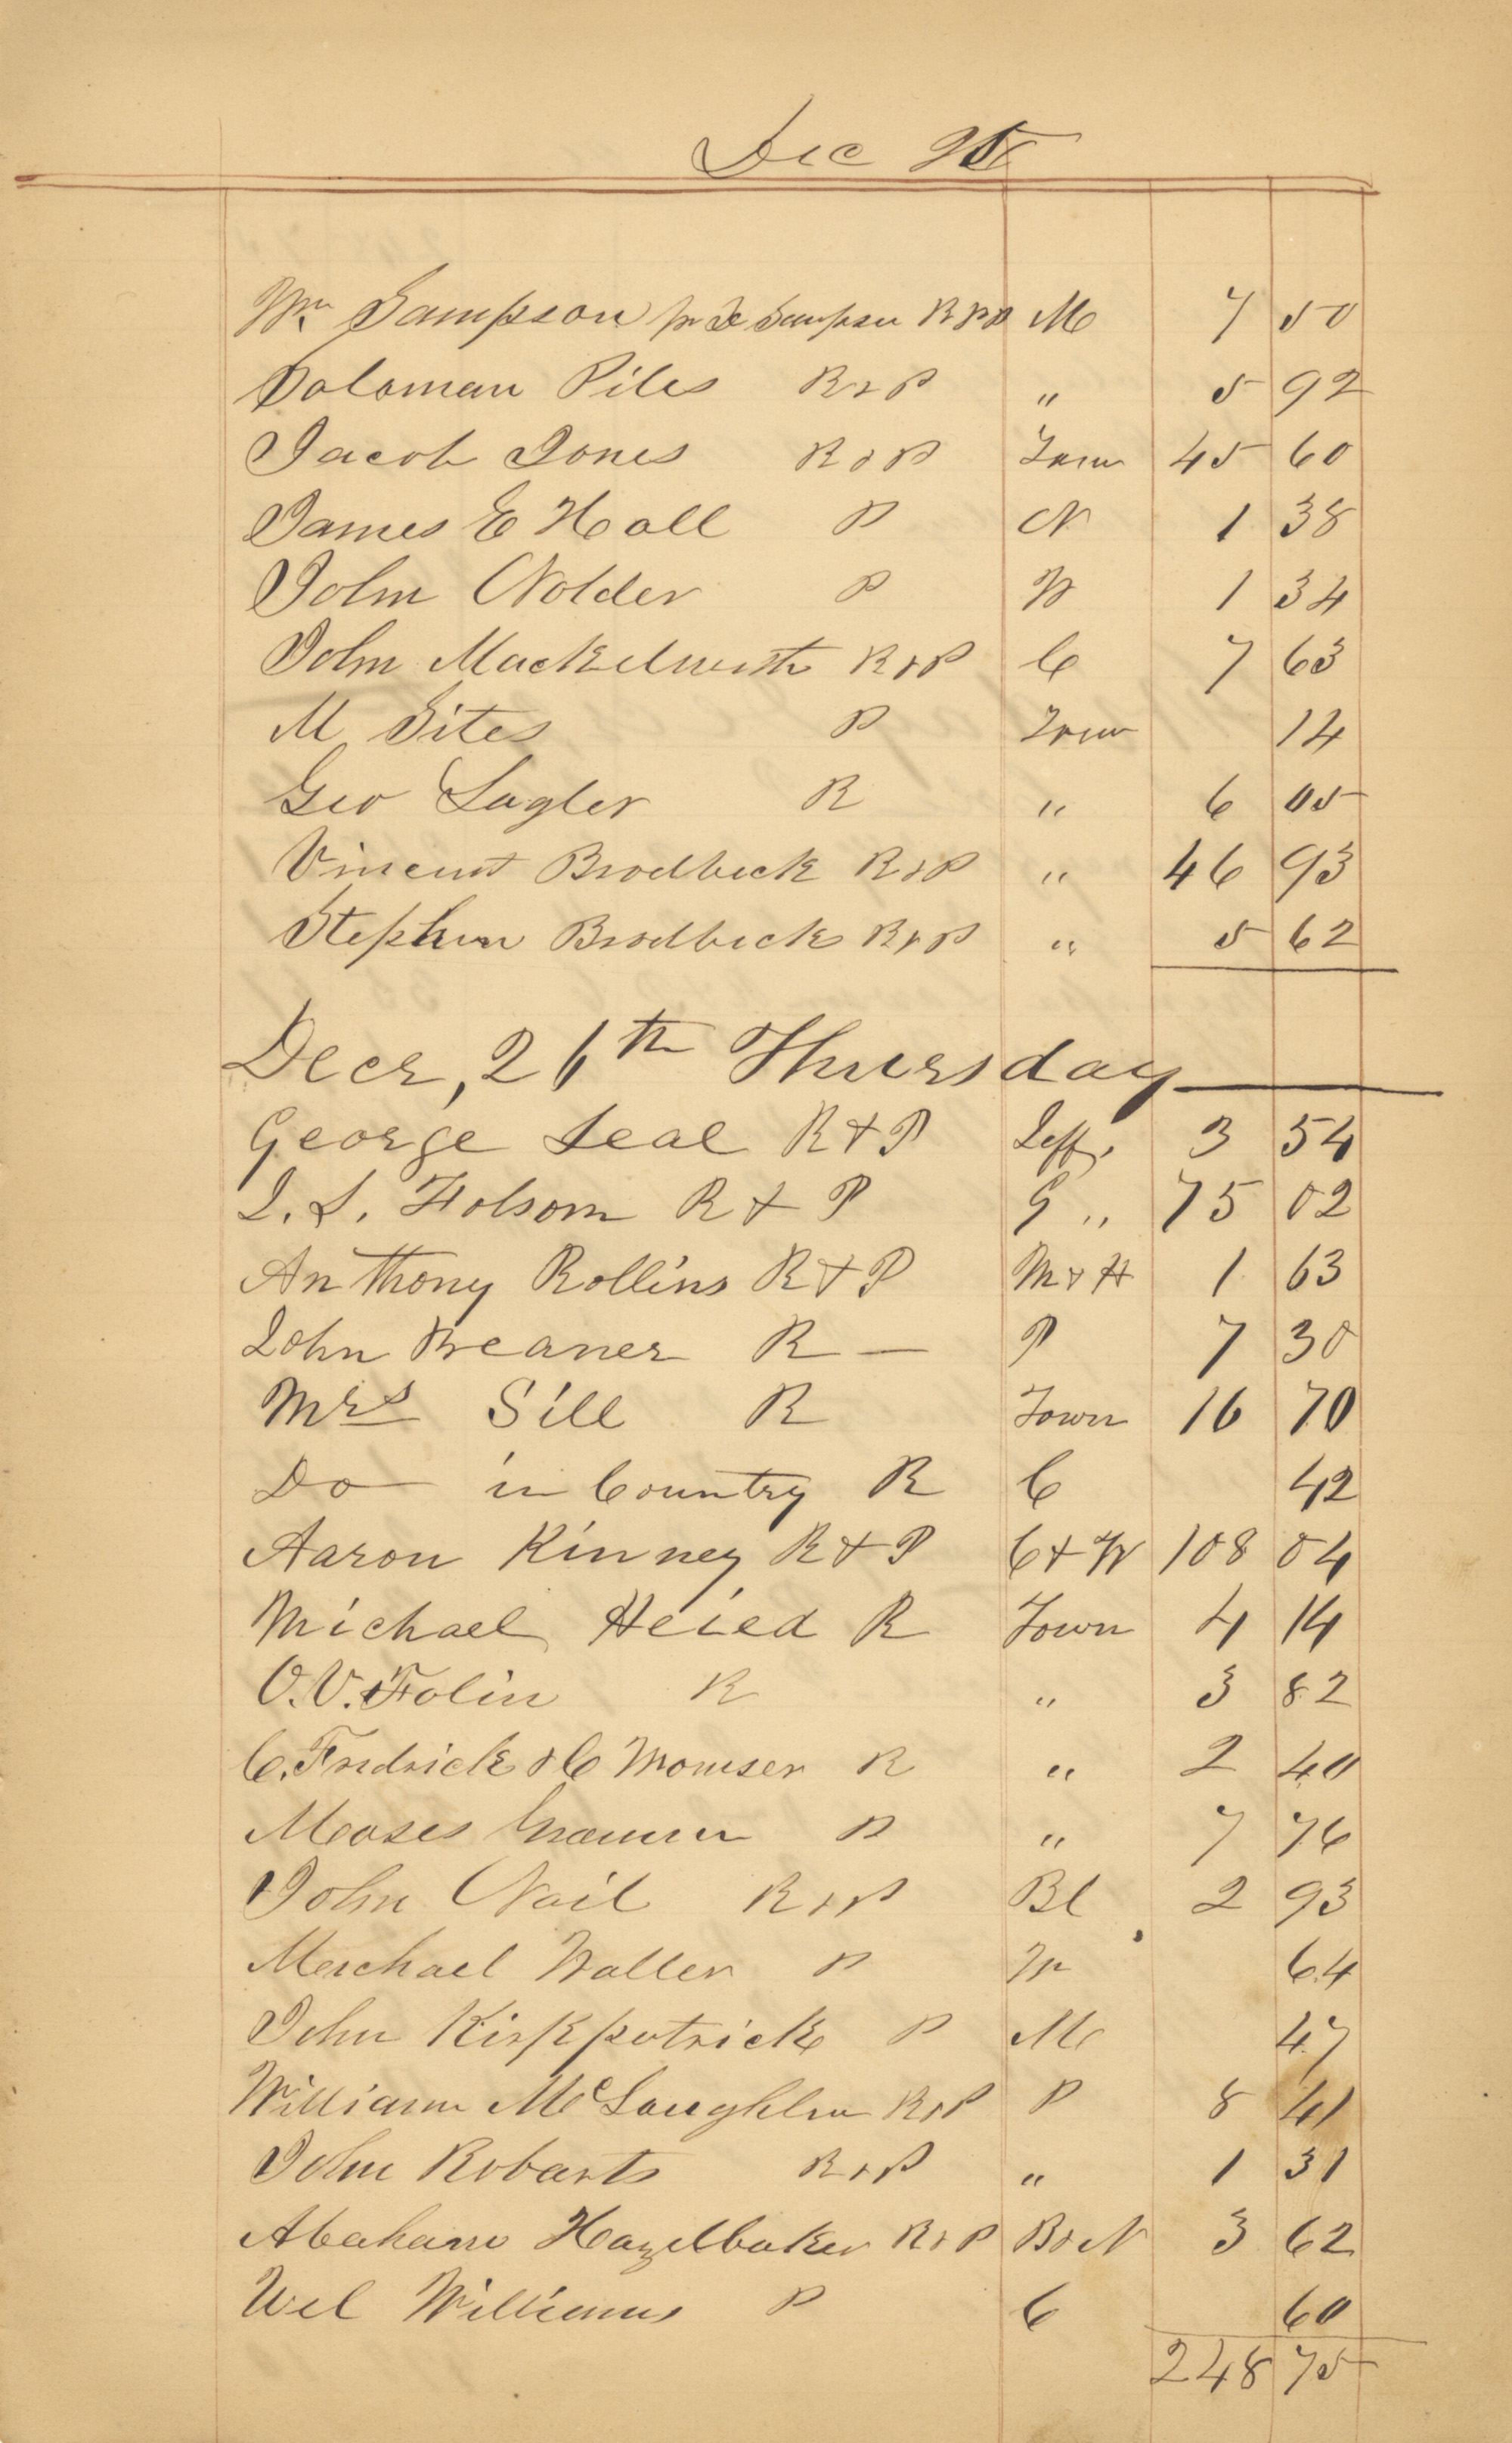 Dec 25
Wm Sampson pr Le Sampson R & P M 7 50
Soloman Piles R & P " 5 92
Jacob Jones R & P Town 45 60
James E Hall P N 1 38
John Nolder P W 1 34
John Mackelwrath R & P C 7 63
M Sites P Town 14
Geo Lagler R " 6 05
Vincent Brodbeck R & P " 46 93
Stephen Brodbeck R & P " 5 62
Decr, 26th Thursday
George Seal R & P Jeff. 3 54
I. S. Folsom R & P G " 75 02
Anthony Rollins R & P M & H 1 63
John Beaner R — P 7 30
Mrs Sill R Town 16 70
Do in Country R C 42
Aaron Kinney R & P C & W 108 04
Michael Heied R Town 4 14
O. V. Folin R " 3 82
C. Fredrick & C Momser R " 2 40
Moses P " 7 76
John Nail R & P Bl 2 93
Meichael Waller P W 64
John Kirkpatrick P M 47
William McLaughlin R & P P 8 41
John Robarts R & P " 1 31
Abaham Hazelbaker R & P B & N 3 62
Wel Williams P C 60
248 75